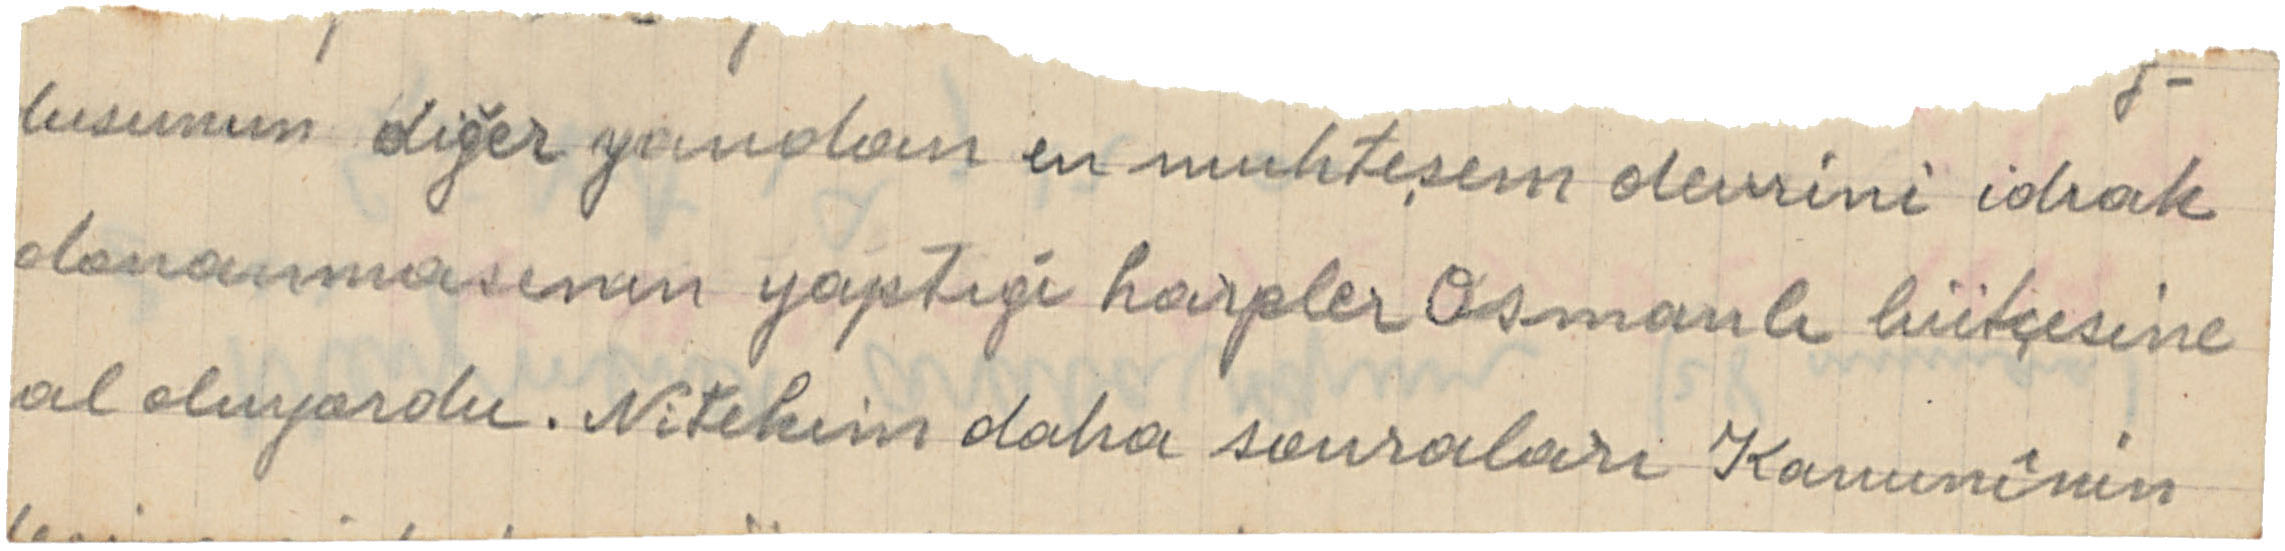 lusunun diğer yandan en muhteşem devrini idrak
donanmasının yaptığı harpler Osmanlı bütçesine
al oluyordu. Nitekim daha sonraları Kanunînin